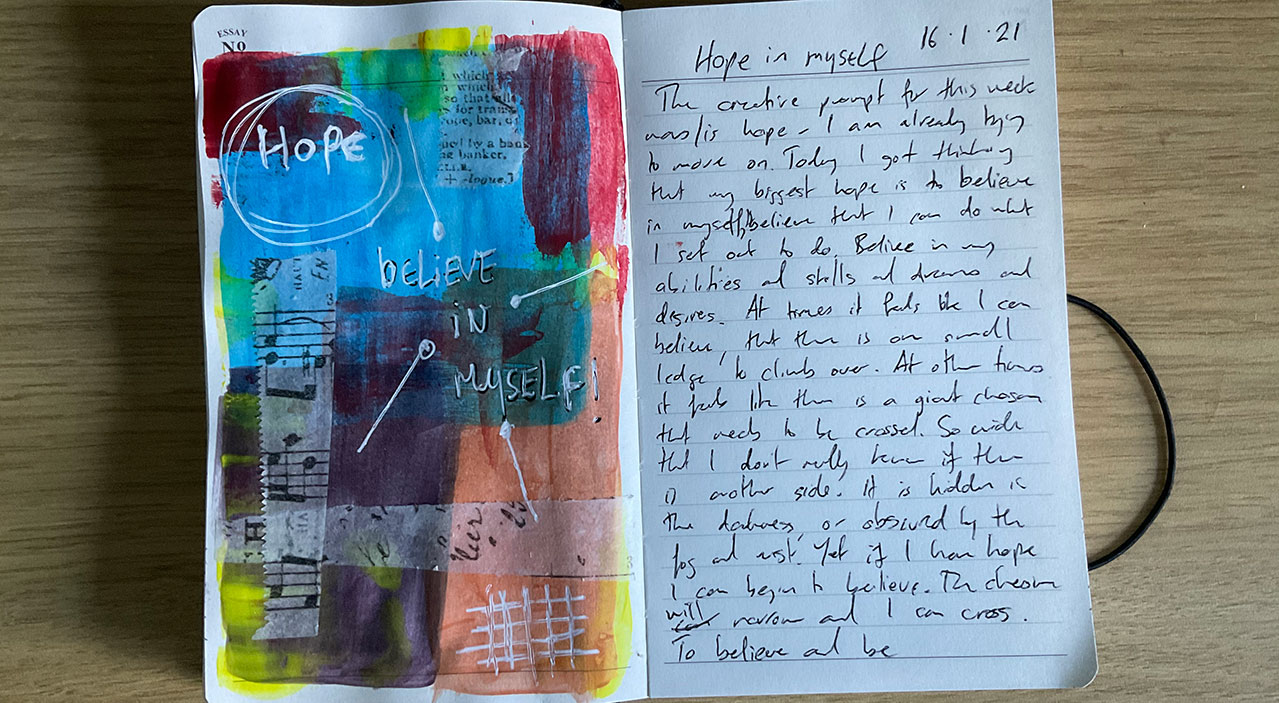 ESSAY
No
which
n which
so that
for trans
rope, bar, or
by a bank
banker.
+ -logue.]
HOPE
BELIEVE
IN
MYSELF!
Hope in myself 16.1.21
The creative prompt for this week
was/is hope - I am already trying
to move on. Today I got thinking
that my biggest hope is to believe
in myself, believe that I can do what
I set out to do. Believe in my
abilities and skills and dreams and
desires. At times it feels like I can
believe, that there is one small
ledge to climb over. At other times
it feels like there is a giant chasm
that needs to be crossed. So wide
that I don't really know if there
is another side. It is hidden in
the darkness, or obscured by the
fog and mist. Yet if I have hope
I can begin to believe. The chasm
will narrow and I can cross.
To believe and be